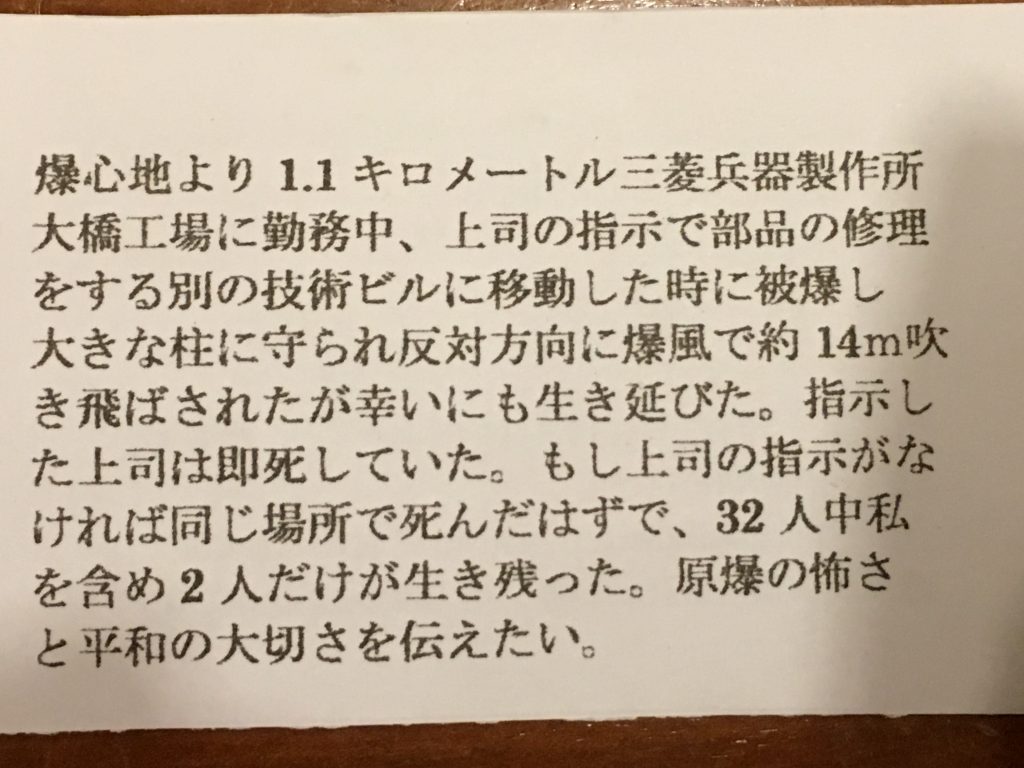 爆心地より 1.1 キロメートル三菱兵器製作所
大橋工場に勤務中、上司の指示で部品の修理
をする別の技術ビルに移動した時に被爆し
大きな柱に守られ反対方向に爆風で約 14m吹
き飛ばされたが幸いにも生き延びた。指示し
た上司は即死していた。もし上司の指示がな
ければ同じ場所で死んだはずで、32 人中私
を含め 2 人だけが生き残った。原爆の怖さ
と平和の大切さを伝えたい。